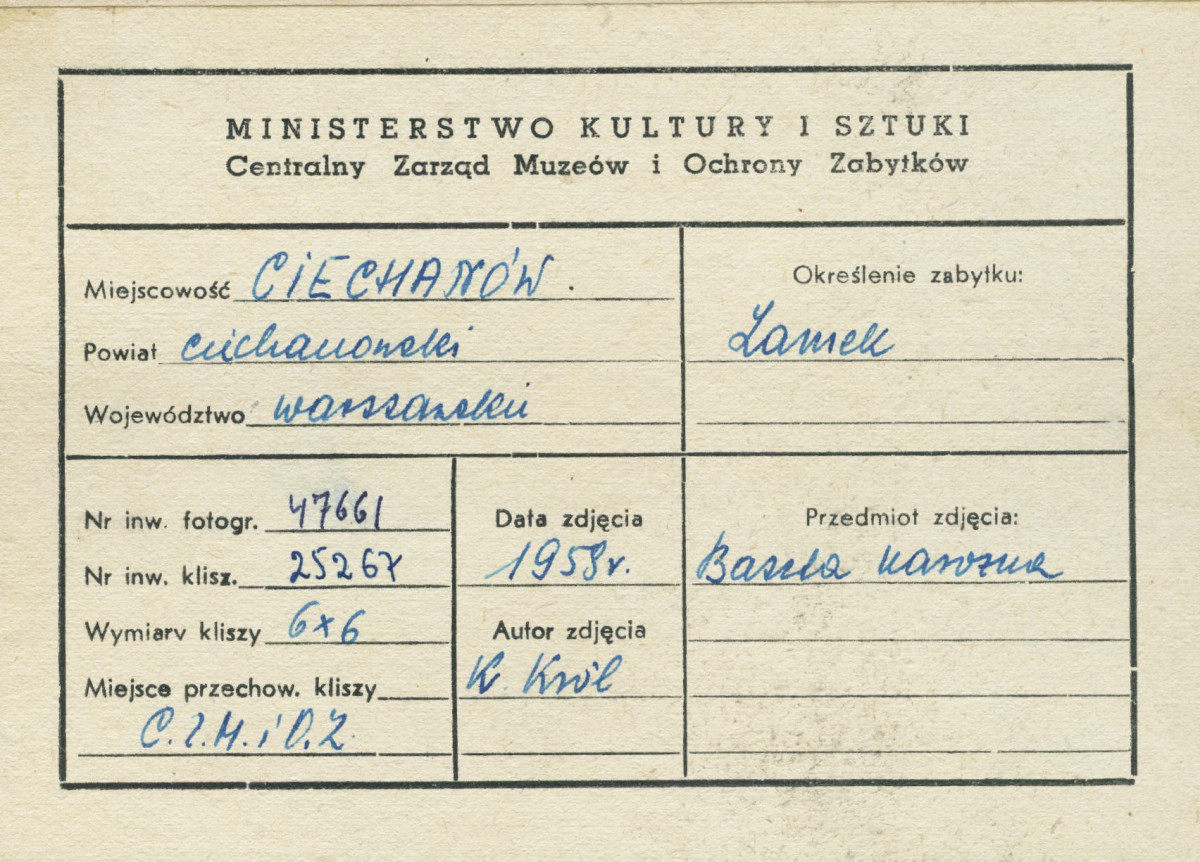 MINISTERSTWO KULTURY I SZTUKI
Centralny Zarząd Muzeów i Ochrony Zabytków
Miejscowość CIECHANÓW.
Powiat ciechanowski
Województwo warszawskie
Określenie zabytku:
Zamek
Nr inw. fotogr. 47661
Nr inw. klisz. 25267
Wymiary kliszy 6x6
Miejsce przechow. kliszy
C.Z.M. i O.Z.
Data zdjęcia
1958r.
Autor zdjęcia
K. Król
Przedmiot zdjęcia:
Baszta narożna